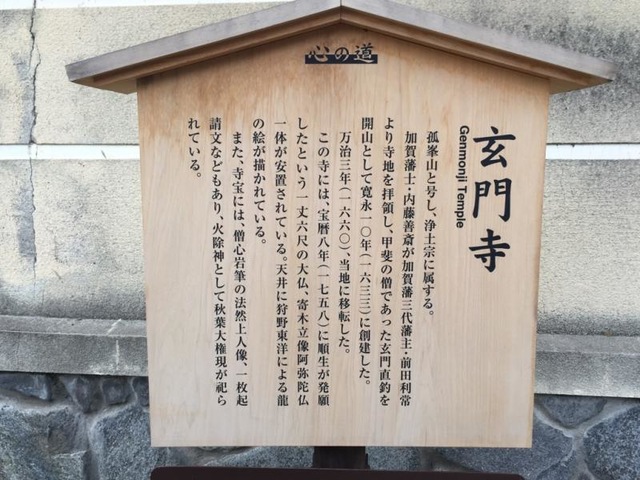 心の道
玄門寺
Genmonji Temple
孤峯山と号し、浄土宗に属する。
加賀藩士・内藤善斎が加賀藩三代藩主・前田利常
より寺地を拝領し、甲斐の僧であった玄門直釣を
開山として寛永一〇年（一六三三）に創建した。
万治三年（一六六〇）、当地に移転した。
この寺には、宝暦八年（一七五八）に順生が発願
したという一丈六尺の大仏、寄木立像阿弥陀仏
一体が安置されている。天井に狩野東洋による龍
の絵が描かれている。
また、寺宝には、僧心岩筆の法然上人像、一枚起
請文などもあり、火除神として秋葉大権現が祀ら
れている。